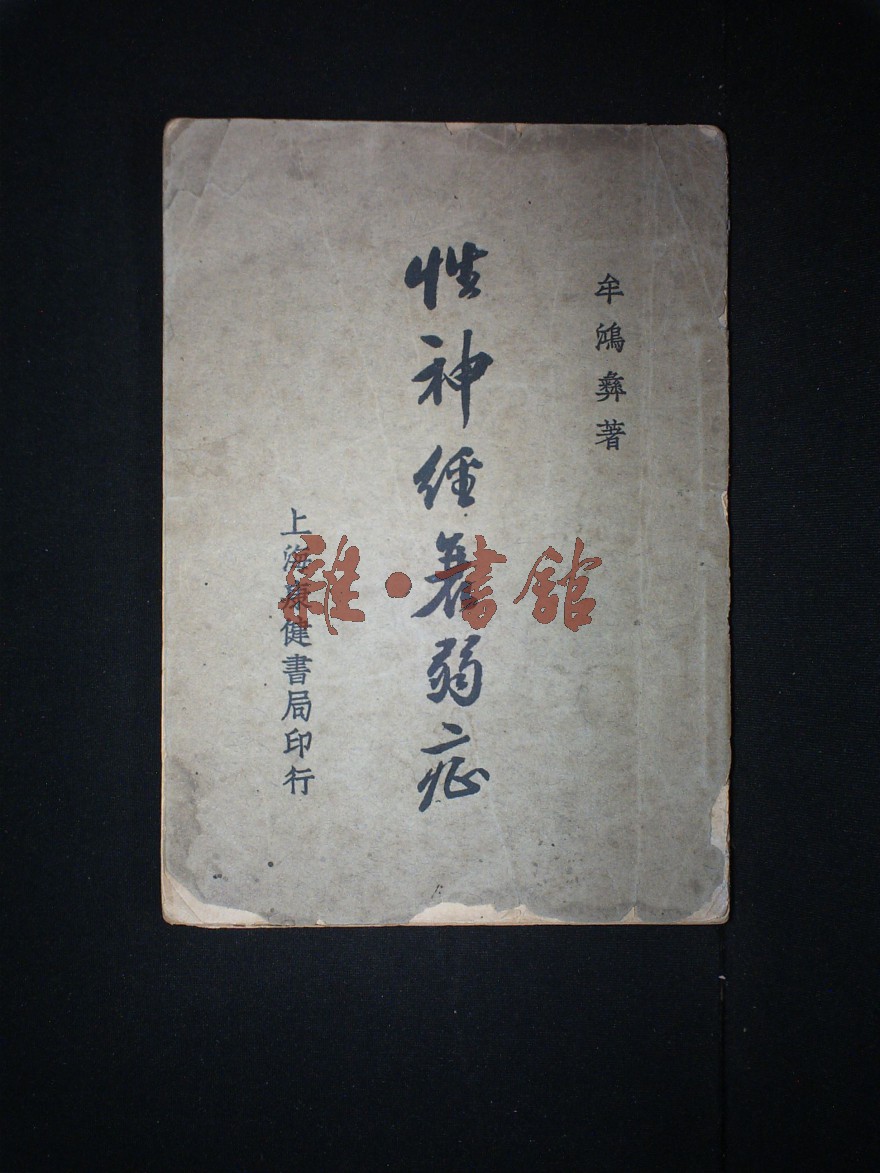 牟鴻彝著
性神經衰弱症
上海康健書局印行
雜·書館